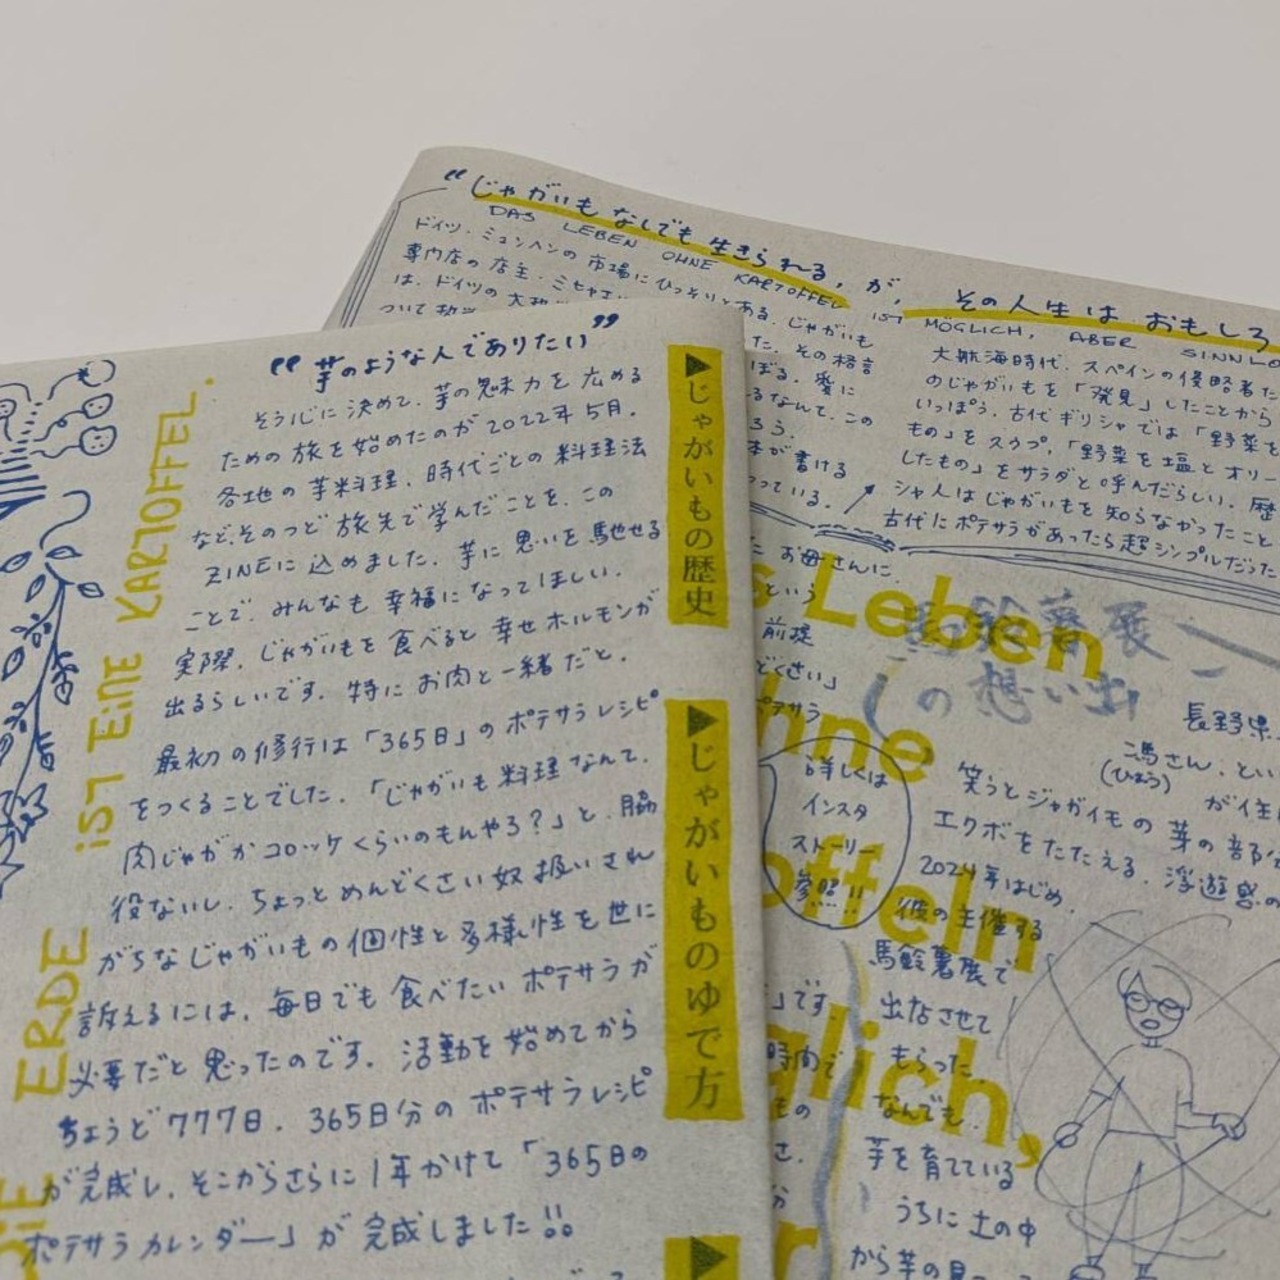 “じゃがいもなしでも生きられる,が,
その人生はおもしろ
DAS LEBEN OHNE KARTOFFEL IST
MÖGLICH, ABER SINNLO
ドイツ・ミュンヘンの市場にひっそりとある、じゃがいも
専門店の店主・ミヒャエ
た、その格言
は、ドイツの
ぼる。愛に
るなんて、この
ろう。
本が書ける
っている。
大航海時代、スペインの侵略者た
のじゃがいもを「発見」したことから
いっぽう、古代ギリシャでは「野菜を
もの」をスウプ、「野菜を塩とオリー
したもの」をサラダと呼んだらしい。歴
シャ人はじゃがいもを知らなかったこと
古代にポテサラがあったら超シンプルだった
お母さんに、
という
前提
どくさい」
ポテサラ
詳しくは
インスタ
ストーリー
参照!!
s Leben
hne
offeln
glich,
馬鈴薯展
の想い出
長野県
馮さん、とい
(ひょう)
が住
笑うとジャガイモの芽の部分
エクボをたたえる、浮遊感の
2024年はじめ、
彼の主催する
馬鈴薯展で
出店させて
もらった。
なんでも、
芋を育てている
うちに土の中
から芋の
です。
時間で
もの
さ、
“芋のような人でありたい”
そう心に決めて、芋の魅力を広める
ための旅を始めたのが2022年5月。
各地の芋料理、時代ごとの料理法
など、そのつど旅先で学んだことを、この
ZINEに込めました。芋に思いを馳せる
ことで、みんなも幸福になってほしい。
実際、じゃがいもを食べると幸せホルモンが
出るらしいです。特にお肉と一緒だと。
最初の修行は「365日」のポテサラレシピ
をつくることでした。「じゃがいも料理なんて、
肉じゃがかコロッケくらいのもんやろ?」と、脇
役ないし、ちょっとめんどくさい奴扱いされ
がちなじゃがいもの個性と多様性を世に
訴えるには、毎日でも食べたいポテサラが
必要だと思ったのです。活動を始めてから
ちょうど777日、365日分のポテサラレシピ
が完成し、そこからさらに1年かけて「365日の
ポテサラカレンダー」が完成しました!!
▶じゃがいもの歴史
▶じゃがいものゆで方
▶
DIE ERDE iST EiNE KARTOFFEL.